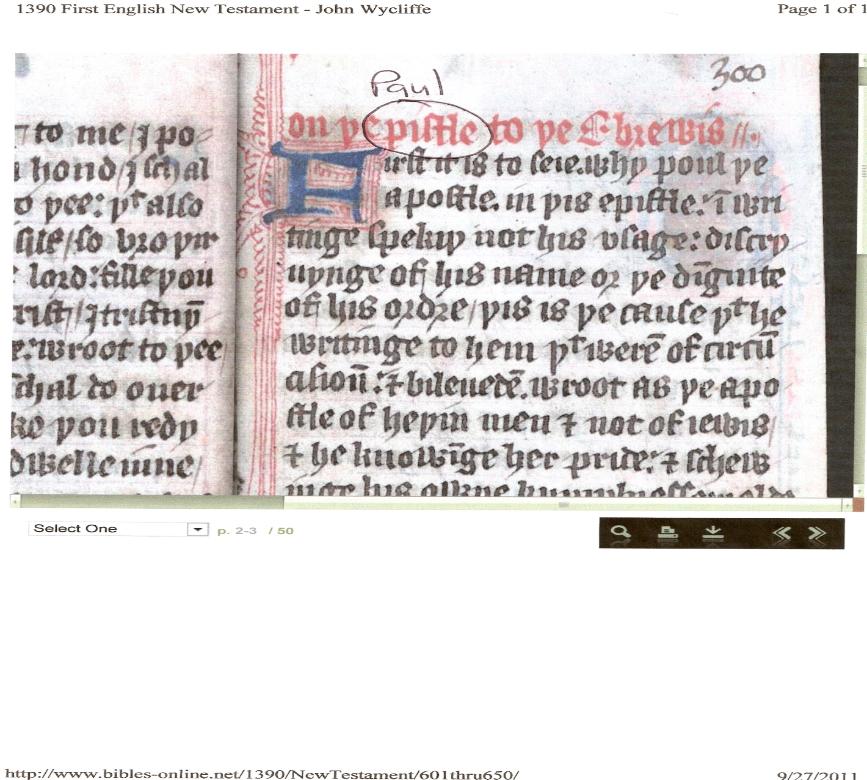 1390 First English New Testament - John Wycliffe
Page 1 of 1
300
Paul
to me / ⁊ þo
hond / ⁊ schal
þee: þͭ also
/ so broþir
lord: fille þou
wroot to þee
schal do ouer
þou redy
on þe pistle to þe Ebrewis //.
First it is to seie. why poul þe
apostle. in þis epistle: ī wri
tinge spekiþ not his vsage: discry
uynge of his name or þe dīgnite
of his ordre / þis is þe cause þͭ he
writinge to hem þͭ werē of circū
cisioū: ⁊ bileuedē. wroot as þe apo
stle of heþin men ⁊ not of iewis /
⁊ he knowīge her pride: ⁊ schew
inge his owne humylnesse
Select One
p. 2-3 / 50
http://www.bibles-online.net/1390/NewTestament/601thru650/
9/27/2011